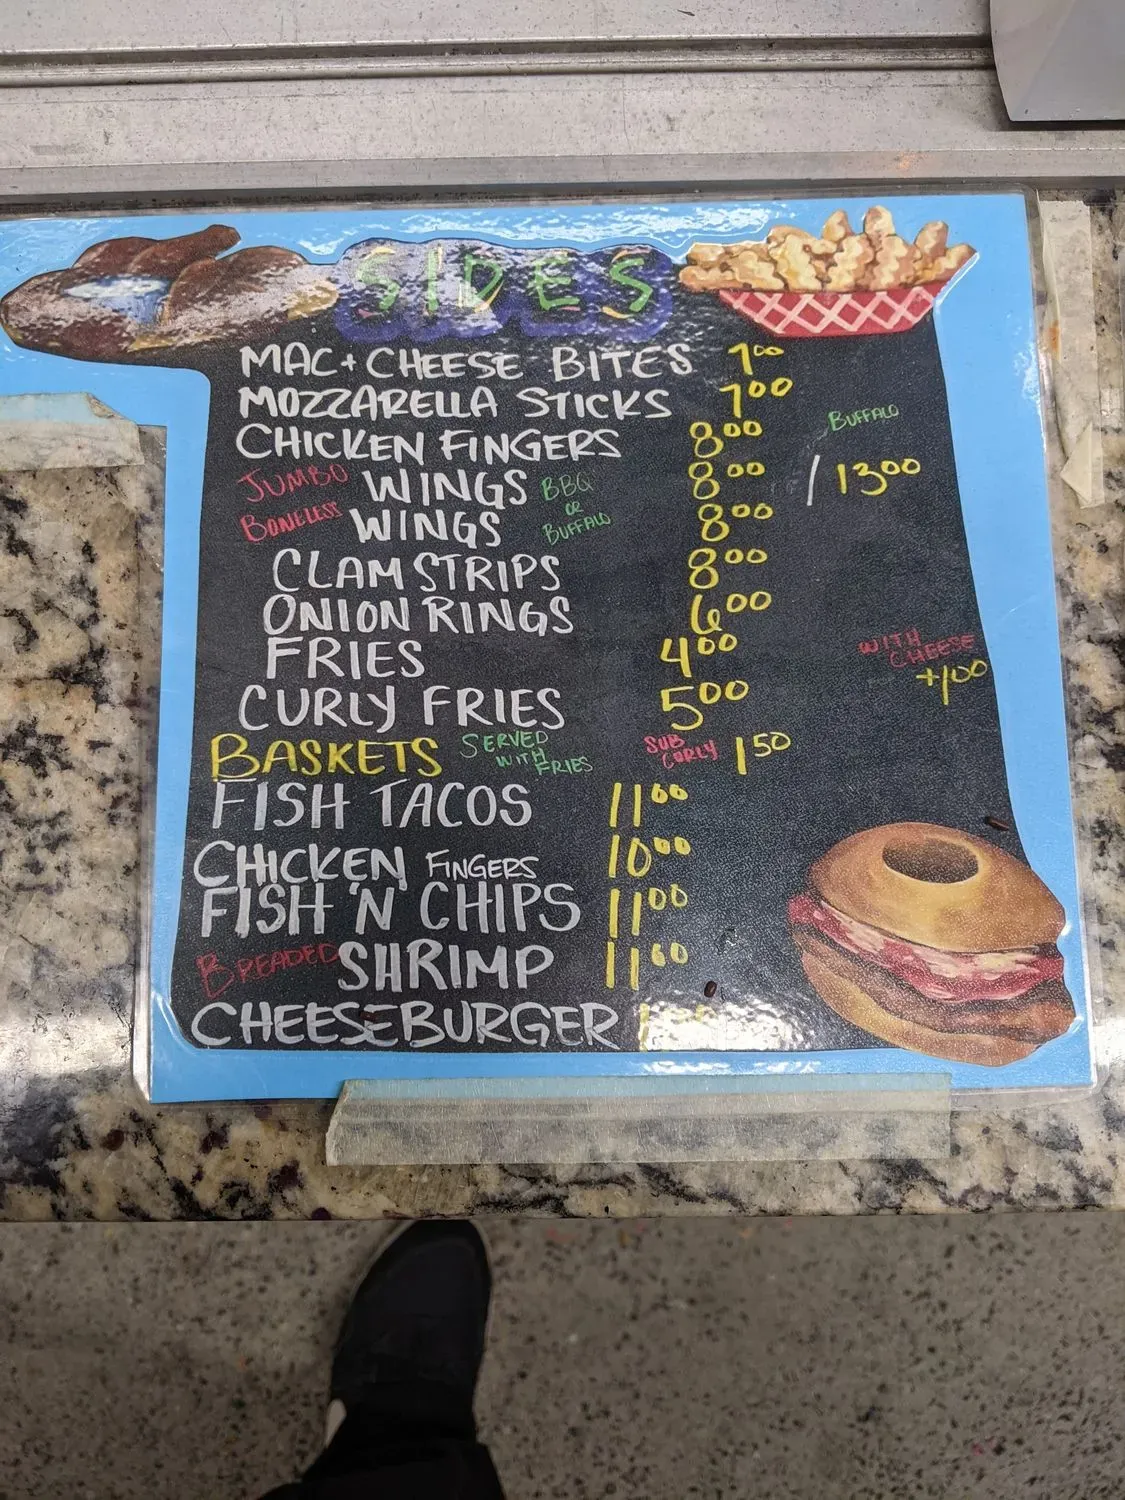 SIDES
MAC + CHEESE BITES 7.00
MOZZARELLA STICKS 7.00
CHICKEN FINGERS 8.00 BUFFALO
JUMBO WINGS BBQ 8.00 / 13.00
OR
BONELESS WINGS BUFFALO 8.00
CLAM STRIPS 8.00
ONION RINGS 6.00
FRIES 4.00 WITH CHEESE
CURLY FRIES 5.00 +1.00
BASKETS SERVED WITH FRIES SUB CURLY 1.50
FISH TACOS 11.00
CHICKEN FINGERS 10.00
FISH 'N CHIPS 11.00
BREADED SHRIMP 11.00
CHEESEBURGER